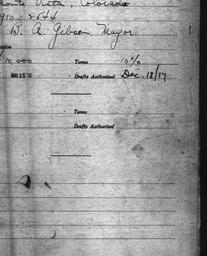 Monte Vista, Colorado
1910 : 2544
B. A. Gibson, Mayor
10,000 Terms 10%
Drafts Authorized Dec. 18/17
Terms
Drafts Authorized